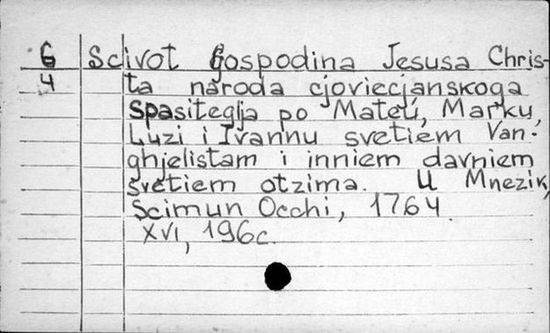 6 Scivot Gospodina Jesusa Chris-
4 ta naroda cjoviecjanskoga
Spasiteglja po Mateu, Marku,
Luzi i Ivannu svetiem Van-
ghjelistam i inniem davniem
svetiem otzima. U Mnezik,
Scimun Occhi, 1764.
XVI, 196c.